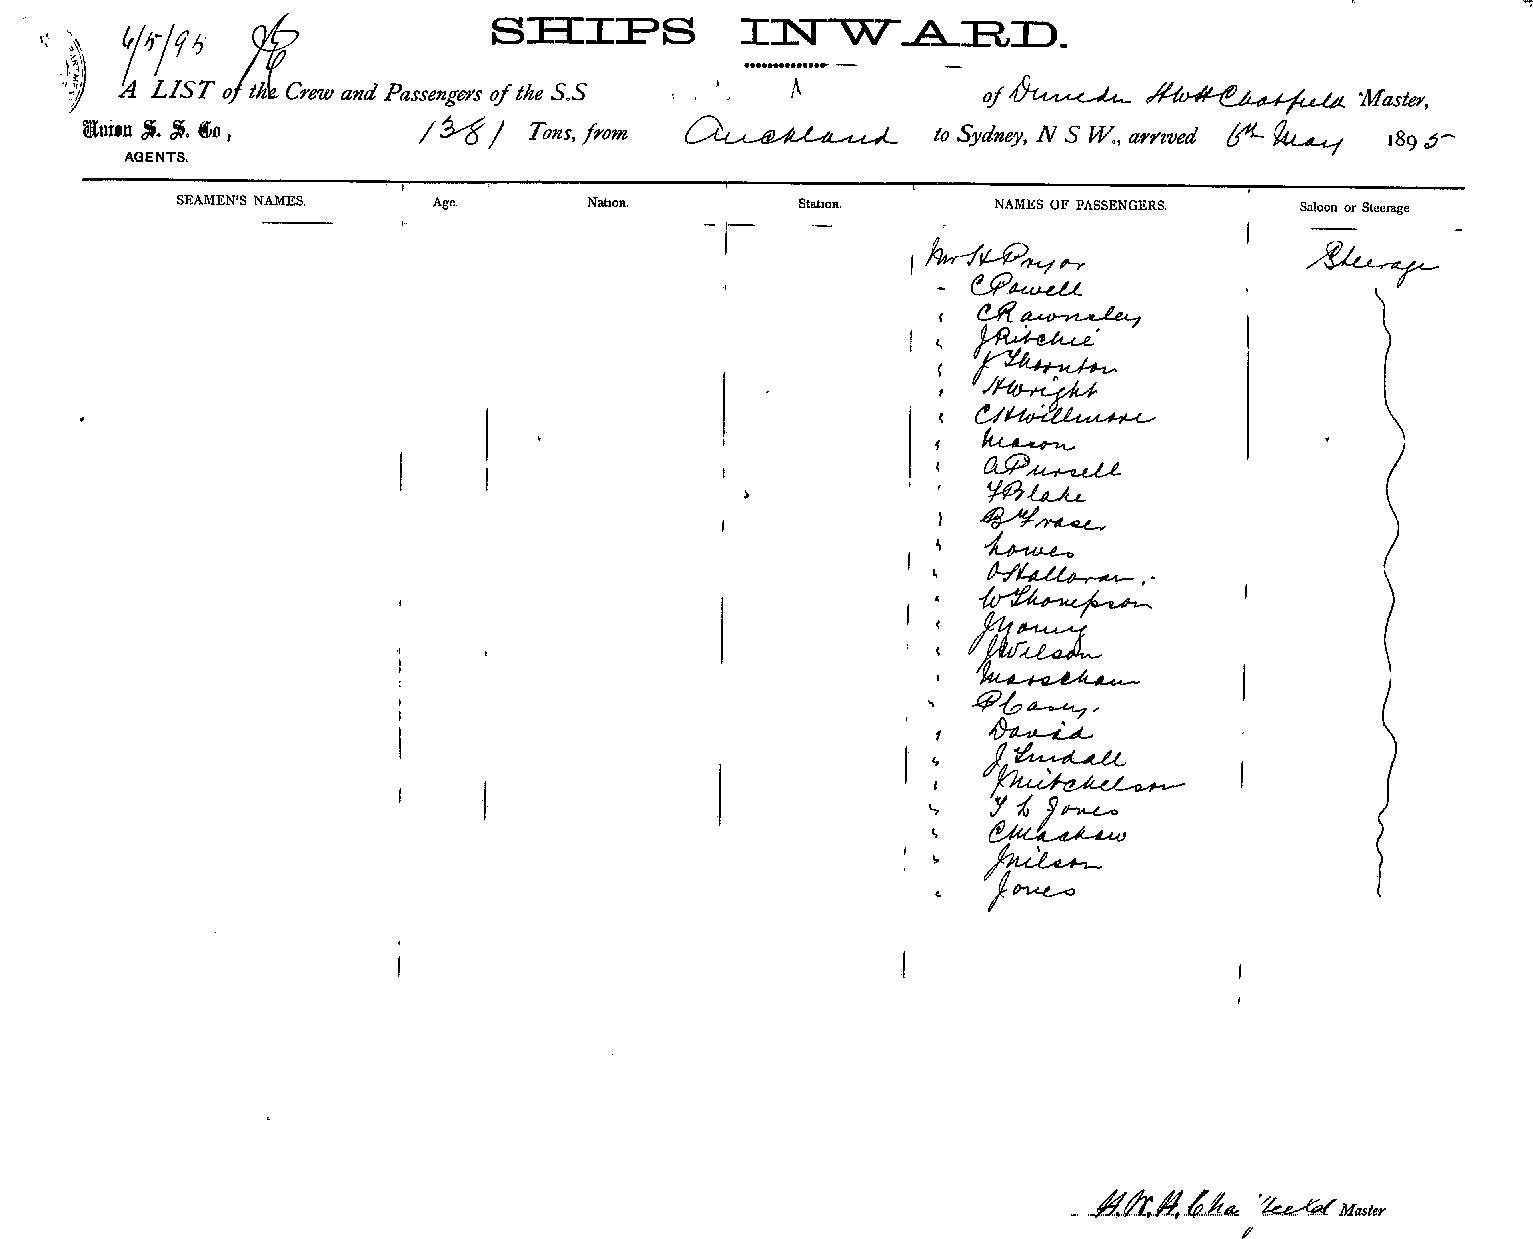 6/5/95
SHIPS INWARD.
A LIST of the Crew and Passengers of the S.S of Dunedin H W H Chatfield Master,
Union S. S. Co, 1381 Tons, from Auckland to Sydney, N S W., arrived 6th May 1895
AGENTS.
SEAMEN'S NAMES. Age. Nation. Station. NAMES OF PASSENGERS. Saloon or Steerage
Mr H Pryor Steerage
" C Powell
" C Rawnsley
" J Ritchie
" J Thornton
" H Wright
" C H Willmore
" Mason
" A Pursell
" F Blake
" B Fraser
" Lowes
" O'Halloran
" W Thompson
" J Young
" J Wilson
"
" P Casey
" David
" J Tindall
" J Mitchelson
" T L Jones
" C
" J Nilson
" Jones
H. W. H. Chatfield Master